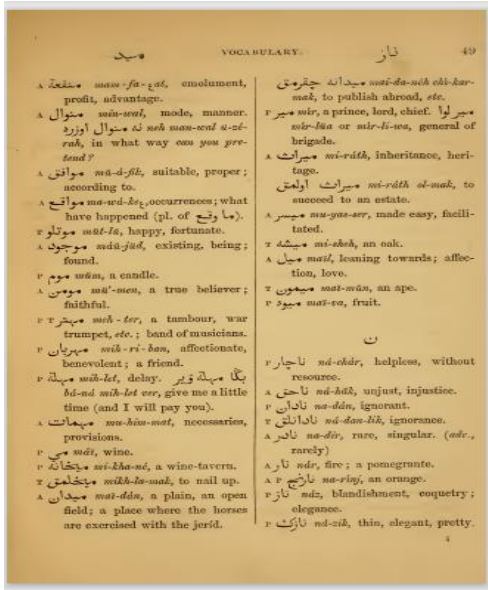 ميد VOCABULARY. ناز 49
A منفعة mam-fa-ʿat, emolument,
profit, advantage.
A منوال min-wal, mode, manner.
نه منوال اوزره neh man-wal u-zé-
rah, in what way can you pre-
tend?
A موافق mū-á-fik, suitable, proper;
according to.
A مواقع ma-wá-keʿ, occurrences; what
have happened (pl. of ما وقع).
T موتلو mūt-lū, happy, fortunate.
A موجود mäū-jūd, existing, being;
found.
P موم mūm, a candle.
A مومن mū'-men, a true believer;
faithful.
P T مهتر meh-ter, a tambour, war
trumpet, etc.; band of musicians.
P مهربان mih-ri-ban, affectionate,
benevolent; a friend.
P مهلة mih-let, delay. بكا مهلة وير
bá-ná mih-let ver, give me a little
time (and I will pay you).
A مهمات mu-him-mat, necessaries,
provisions.
P مي mäï, wine.
P ميخانه mi-kha-né, a wine-tavern.
T ميخلمق mikh-la-mak, to nail up.
A ميدان maï-dán, a plain, an open
field; a place where the horses
are exercised with the jerid.
ميدانه چقرمق maï-da-néh chi-kar-
mak, to publish abroad, etc.
P مير mir, a prince, lord, chief. مير لوا
mir-lüa or mir-li-wa, general of
brigade.
A ميراث mi-ráth, inheritance, heri-
tage.
ميراث اولمق mi-ráth ol-mak, to
succeed to an estate.
A ميسر mu-yas-ser, made easy, facili-
tated.
T ميشه mi-sheh, an oak.
A ميل maïl, leaning towards; affec-
tion, love.
T ميمون maï-mūn, an ape.
P ميوه maï-va, fruit.
ن
P ناچار ná-chár, helpless, without
resource.
A ناحق ná-hăk, unjust, injustice.
P نادان na-dán, ignorant.
T نادانلق ná-dan-lik, ignorance.
A نادر na-dir, rare, singular. (adv.,
rarely)
A نار nár, fire; a pomegrante.
A P نارنج na-rinj, an orange.
P ناز náz, blandishment, coquetry;
elegance.
P نازك ná-zik, thin, elegant, pretty.
4